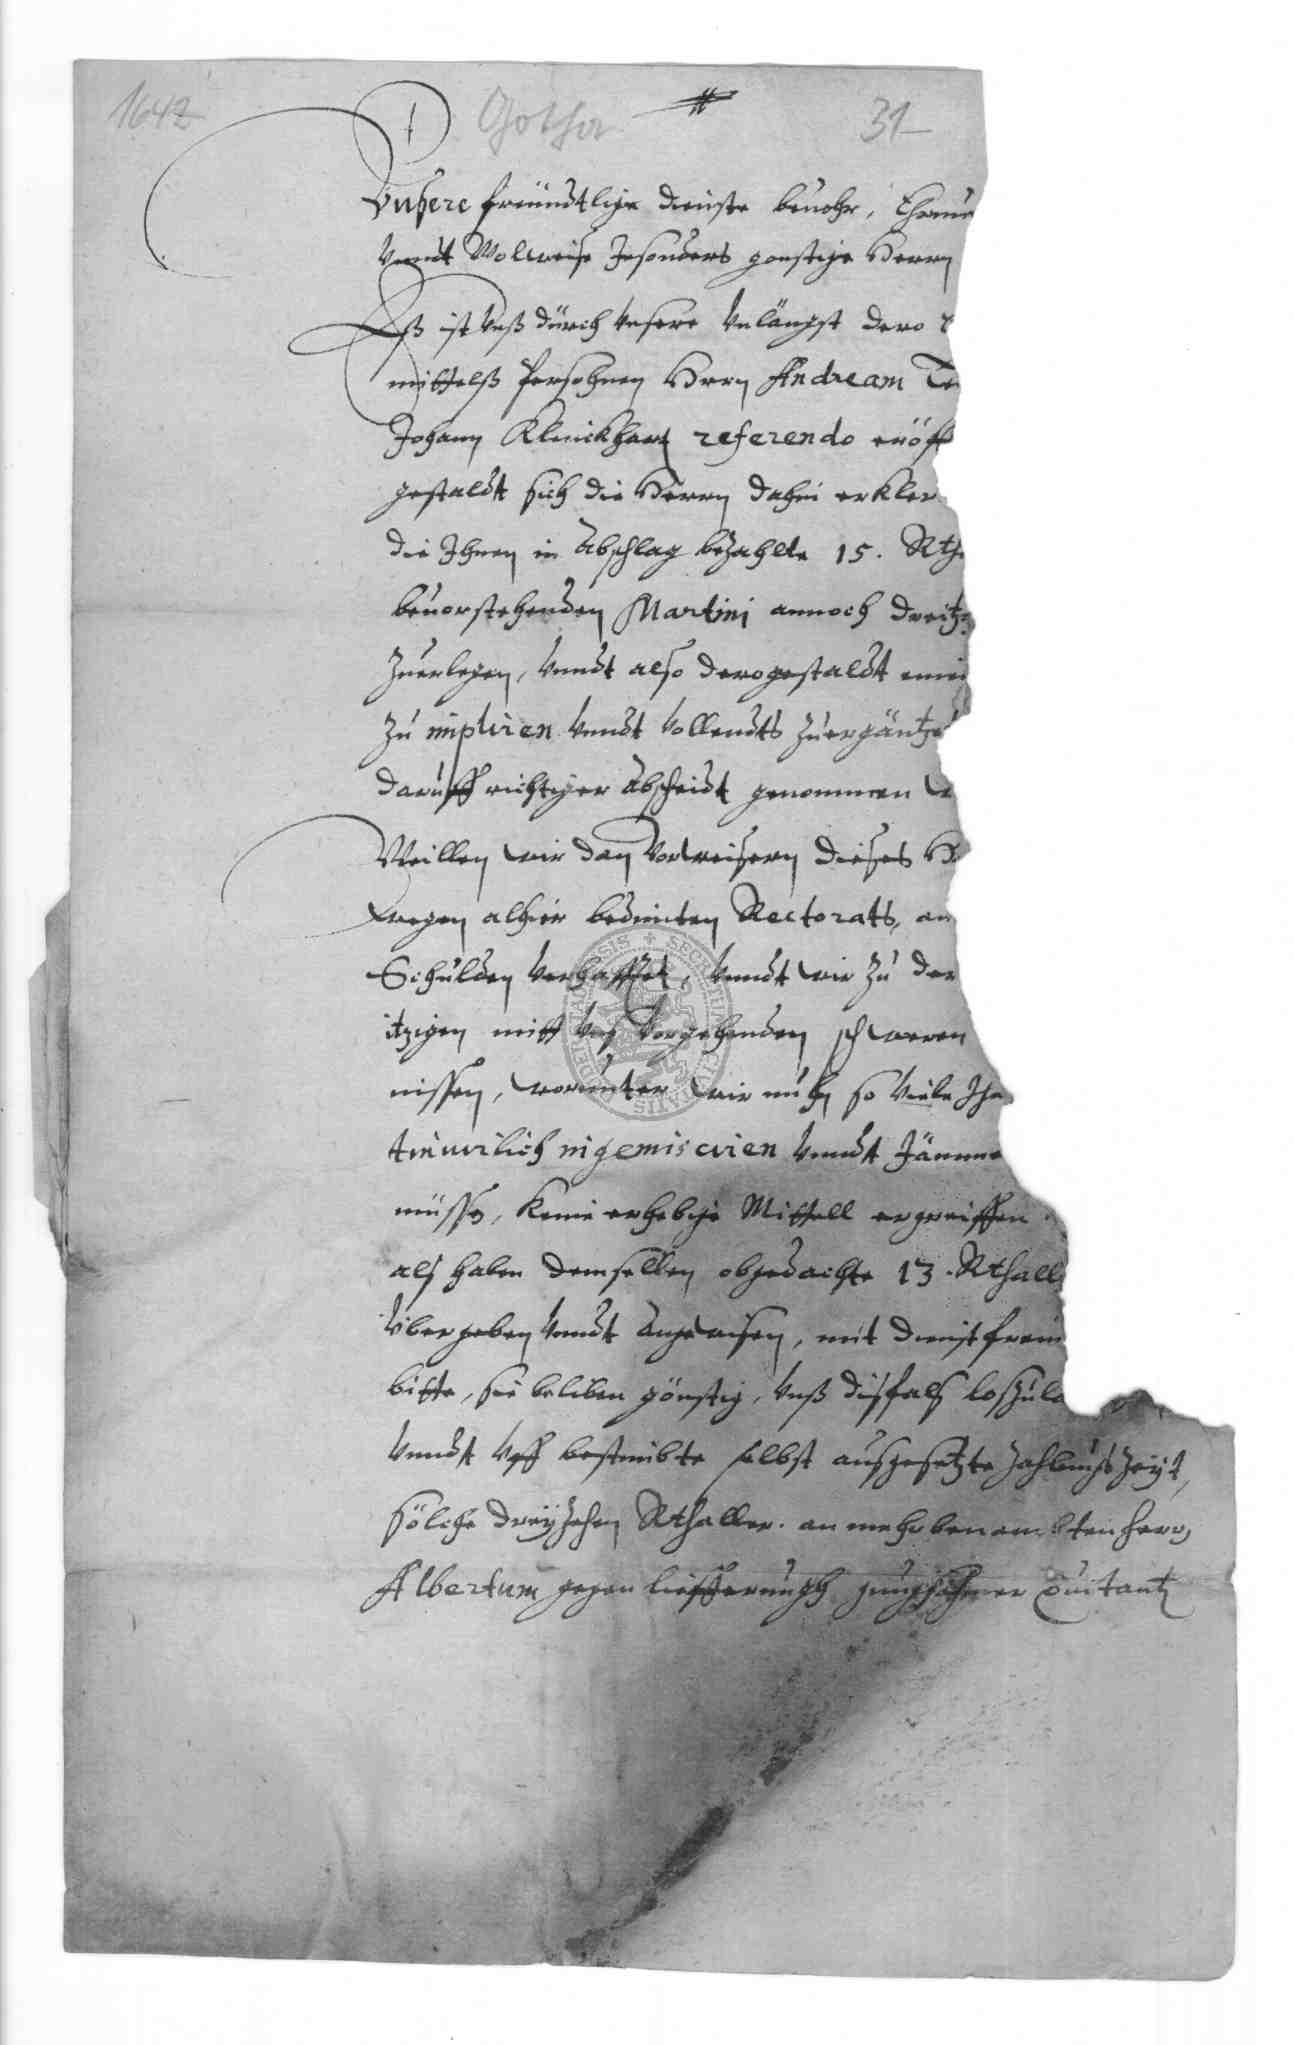 1642 Gotha 31
Vnsere freündtlige dienste beuohr, Ehrnu
Vnndt Wolweise Insonders gonstige Herrn
Eß ist Vnß dürch Vnsere Vnlängst dero
mittelß Persohnen Herrn Andream Te
Johann Klinckhart referendo eröff
gestaldt sich die Herrn dahin erkler
die Ihnen in Abschlag bezahlte 15. Rth
beuorstehenden Martini annoch dreitz
Zuerlegen, Vnndt also derogestaldt
Zu impliren Vnndt Vollendts Zuergäntze
darüff richtiger Abscheidt genommen
Weillen wir dan Vorweisern dieses H
wegen alhier bedienten Rectorats, an
Schulden Verhafftet, Vnndt wir Zu der
itzigen mitt Vorgehenden schweren
nissen, worunter wir nuhn so Viele Jha
ingemisciren Vnndt Jämme
müssen, Keine erhebige Mittell ergreiffen
alß haben demselben obgedachte 13. Rthall
Vbergeben Vnndt Angewisen, mit dienstfreün
bitte, sie belieben gönstig, Vnß dißfalß
Vnndt Vff bestimbte selbst außgesetzte Zahlungs Zeyt,
sölche dreyzehen Rthaller. an mehrbenambten Herrn
Albertum gegen liefferungh Quitantz
SECRETUM CIVITATIS DUDERSTADENSIS